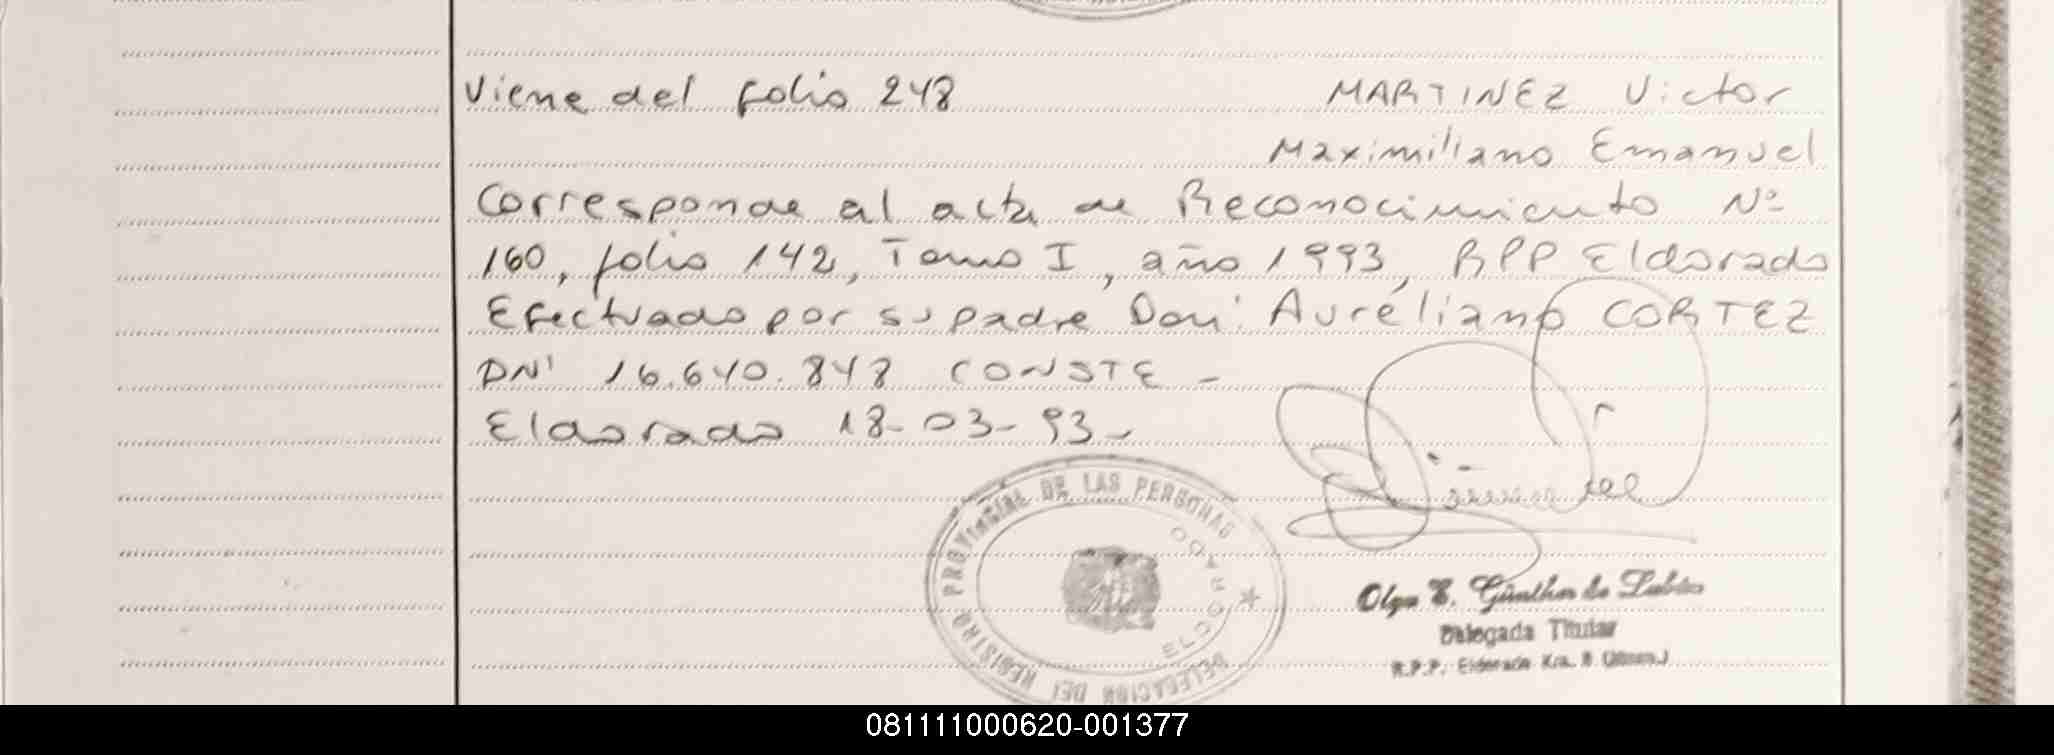 Viene del folio 248 MARTINEZ Victor
Maximiliano Emanuel
Corresponde al acta de Reconocimiento Nº
160, folio 142, Tomo I, año 1993, RPP Eldorado
Efectuado por su padre Don: Aureliano CORTEZ
DNI 16.640.848 CONSTE -
Eldorado 18-03-93-
DELEGACION DEL REGISTRO PROVINCIAL DE LAS PERSONAS
ELDORADO
Olga E. Günther de
Delegada Titular
R.P.P. Eldorado
081111000620-001377